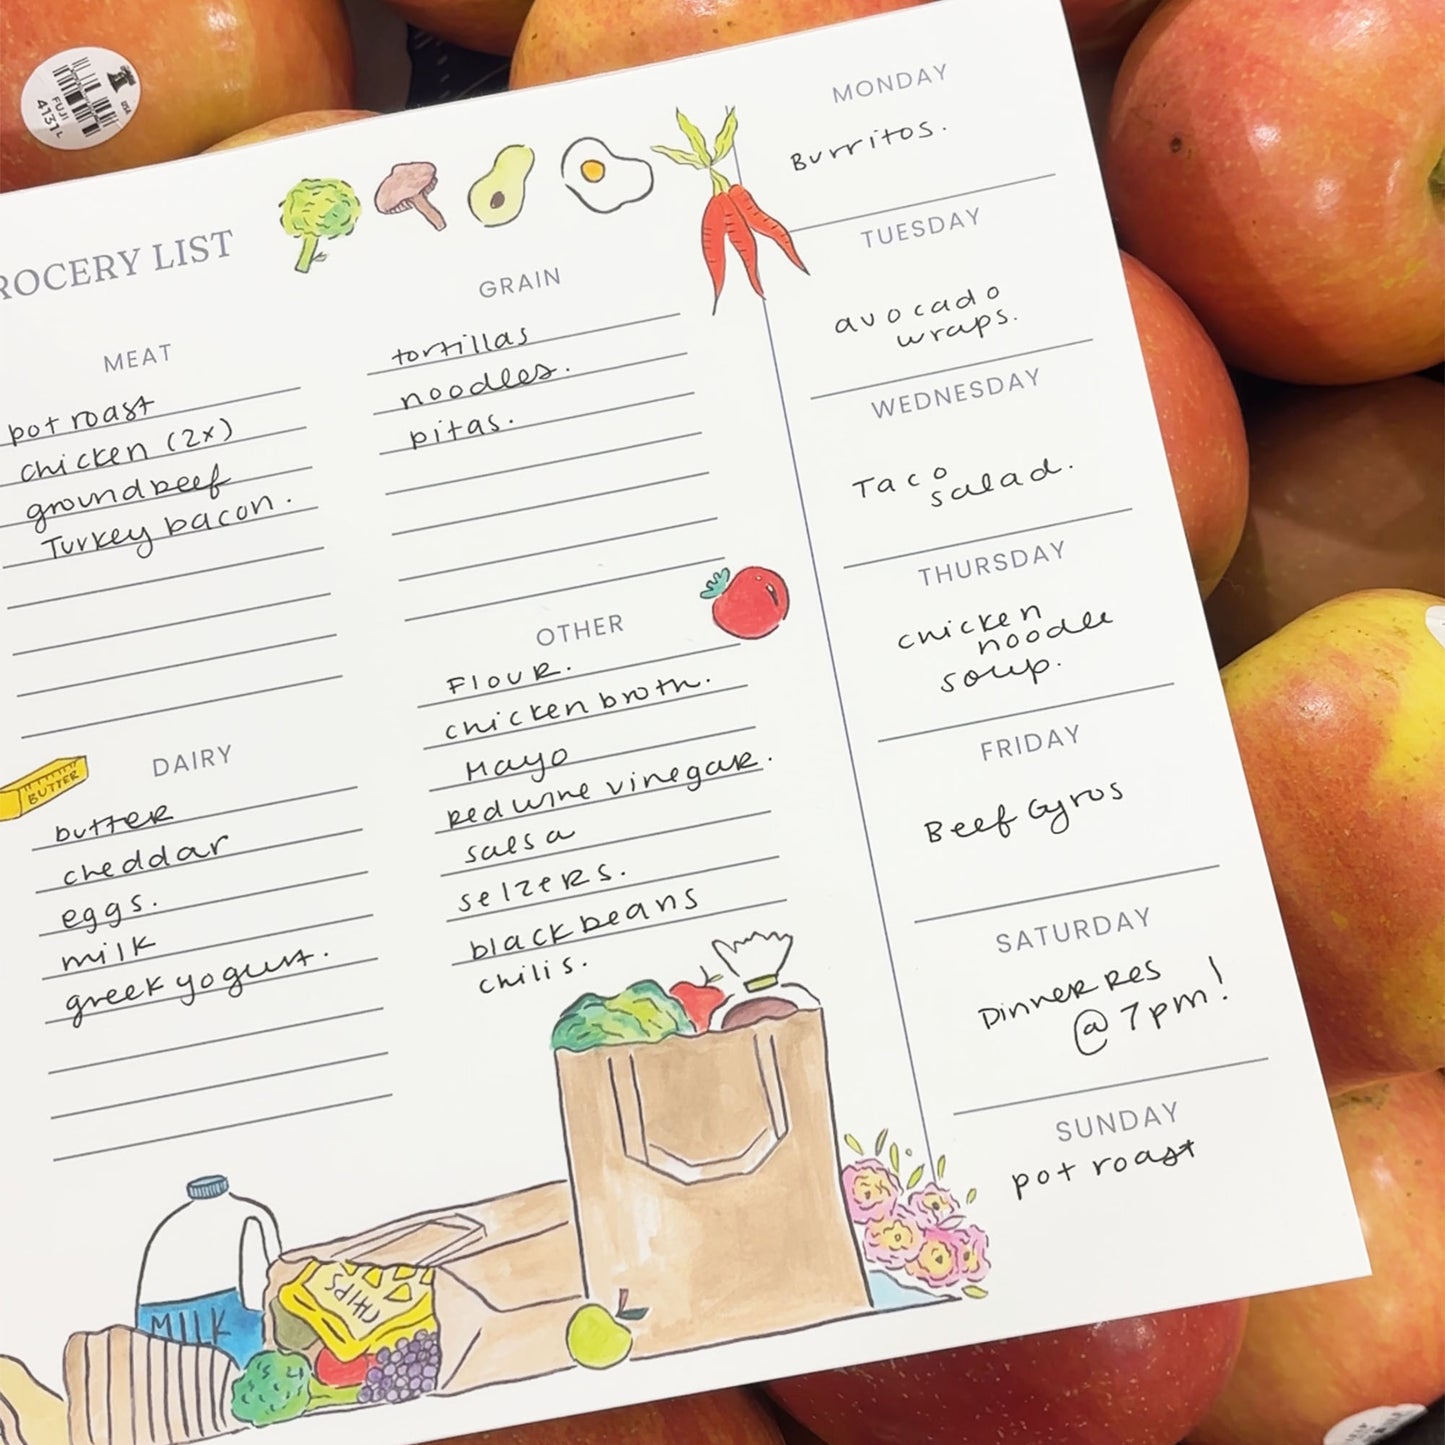 FUJI
4131
USA
ROCERY LIST
MEAT
pot roast
chicken (2x)
ground beef
Turkey bacon.
DAIRY
BUTTER
butter
cheddar
eggs.
milk
greek yogurt.
GRAIN
tortillas
noodles.
pitas.
OTHER
Flour.
chicken broth.
Mayo
Red wine vinegar.
salsa
selzers.
black beans
chilis.
MONDAY
Burritos.
TUESDAY
avocado
wraps.
WEDNESDAY
Taco
salad.
THURSDAY
chicken
noodle
soup.
FRIDAY
Beef Gyros
SATURDAY
Dinner Res
@ 7pm!
SUNDAY
pot roast
MILK
CHIPS